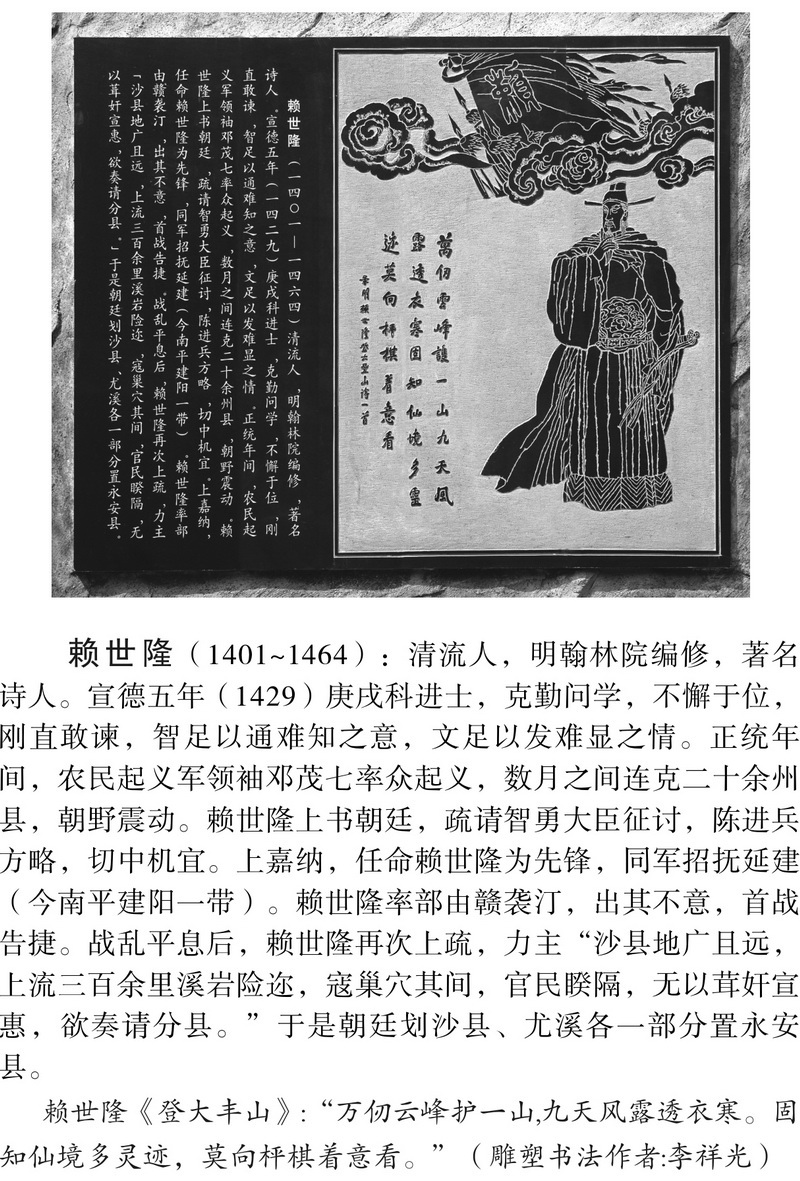 賴
萬仞雲峰護一山九天風
露透衣寒固知仙境多靈
迹莫向枰棋着意看
赖世隆（一四〇一—一四六四）清流人，明翰林院编修，著名
诗人。宣德五年（一四二九）庚戌科进士，克勤问学，不懈于位，刚
直敢谏，智足以通难知之意，文足以发难显之情。正统年间，农民起
义军领袖邓茂七率众起义，数月之间连克二十余州县，朝野震动。赖
世隆上书朝廷，疏请智勇大臣征讨，陈进兵方略，切中机宜。上嘉纳，
任命赖世隆为先锋，同军招抚延建（今南平建阳一带）。赖世隆率部
由赣袭汀，出其不意，首战告捷。战乱平息后，赖世隆再次上疏，力主
「沙县地广且远，上流三百余里溪岩险迩，寇巢穴其间，官民暌隔，无
以茸奸宣惠，欲奏请分县。」于是朝廷划沙县、尤溪各一部分置永安县。
赖世隆（1401~1464）：清流人，明翰林院编修，著名
诗人。宣德五年（1429）庚戌科进士，克勤问学，不懈于位，
刚直敢谏，智足以通难知之意，文足以发难显之情。正统年
间，农民起义军领袖邓茂七率众起义，数月之间连克二十余州
县，朝野震动。赖世隆上书朝廷，疏请智勇大臣征讨，陈进兵
方略，切中机宜。上嘉纳，任命赖世隆为先锋，同军招抚延建
（今南平建阳一带）。赖世隆率部由赣袭汀，出其不意，首战
告捷。战乱平息后，赖世隆再次上疏，力主“沙县地广且远，
上流三百余里溪岩险迩，寇巢穴其间，官民暌隔，无以茸奸宣
惠，欲奏请分县。”于是朝廷划沙县、尤溪各一部分置永安
县。
赖世隆《登大丰山》：“万仞云峰护一山,九天风露透衣寒。固
知仙境多灵迹，莫向枰棋着意看。”（雕塑书法作者:李祥光）